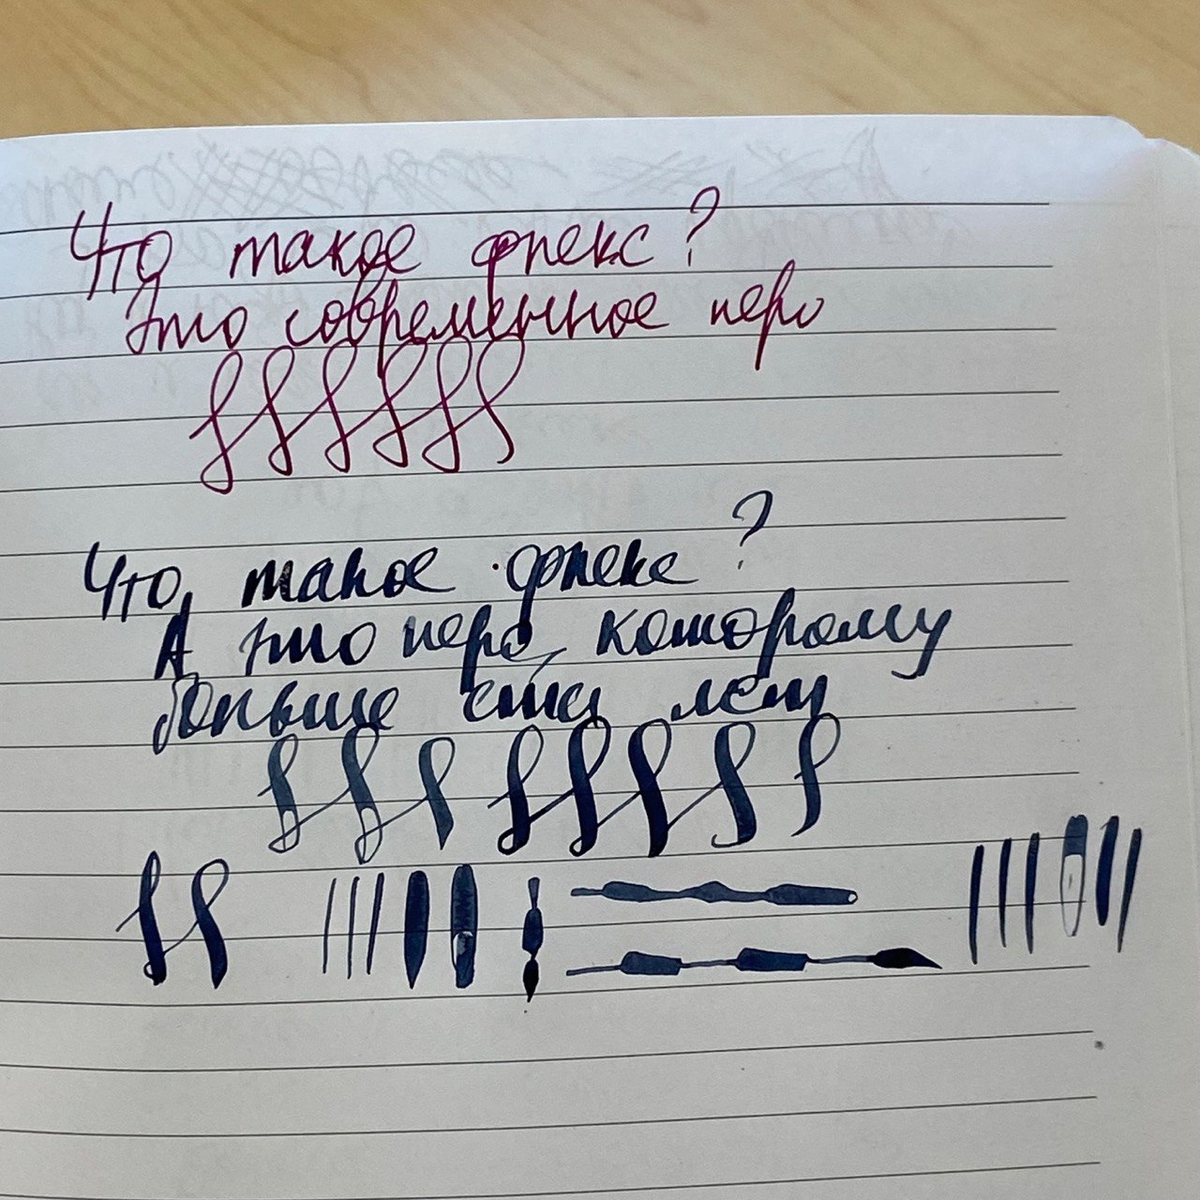 Что такое флекс?
Это современное перо
Что такое флекс?
А это перо, которому
больше ста лет